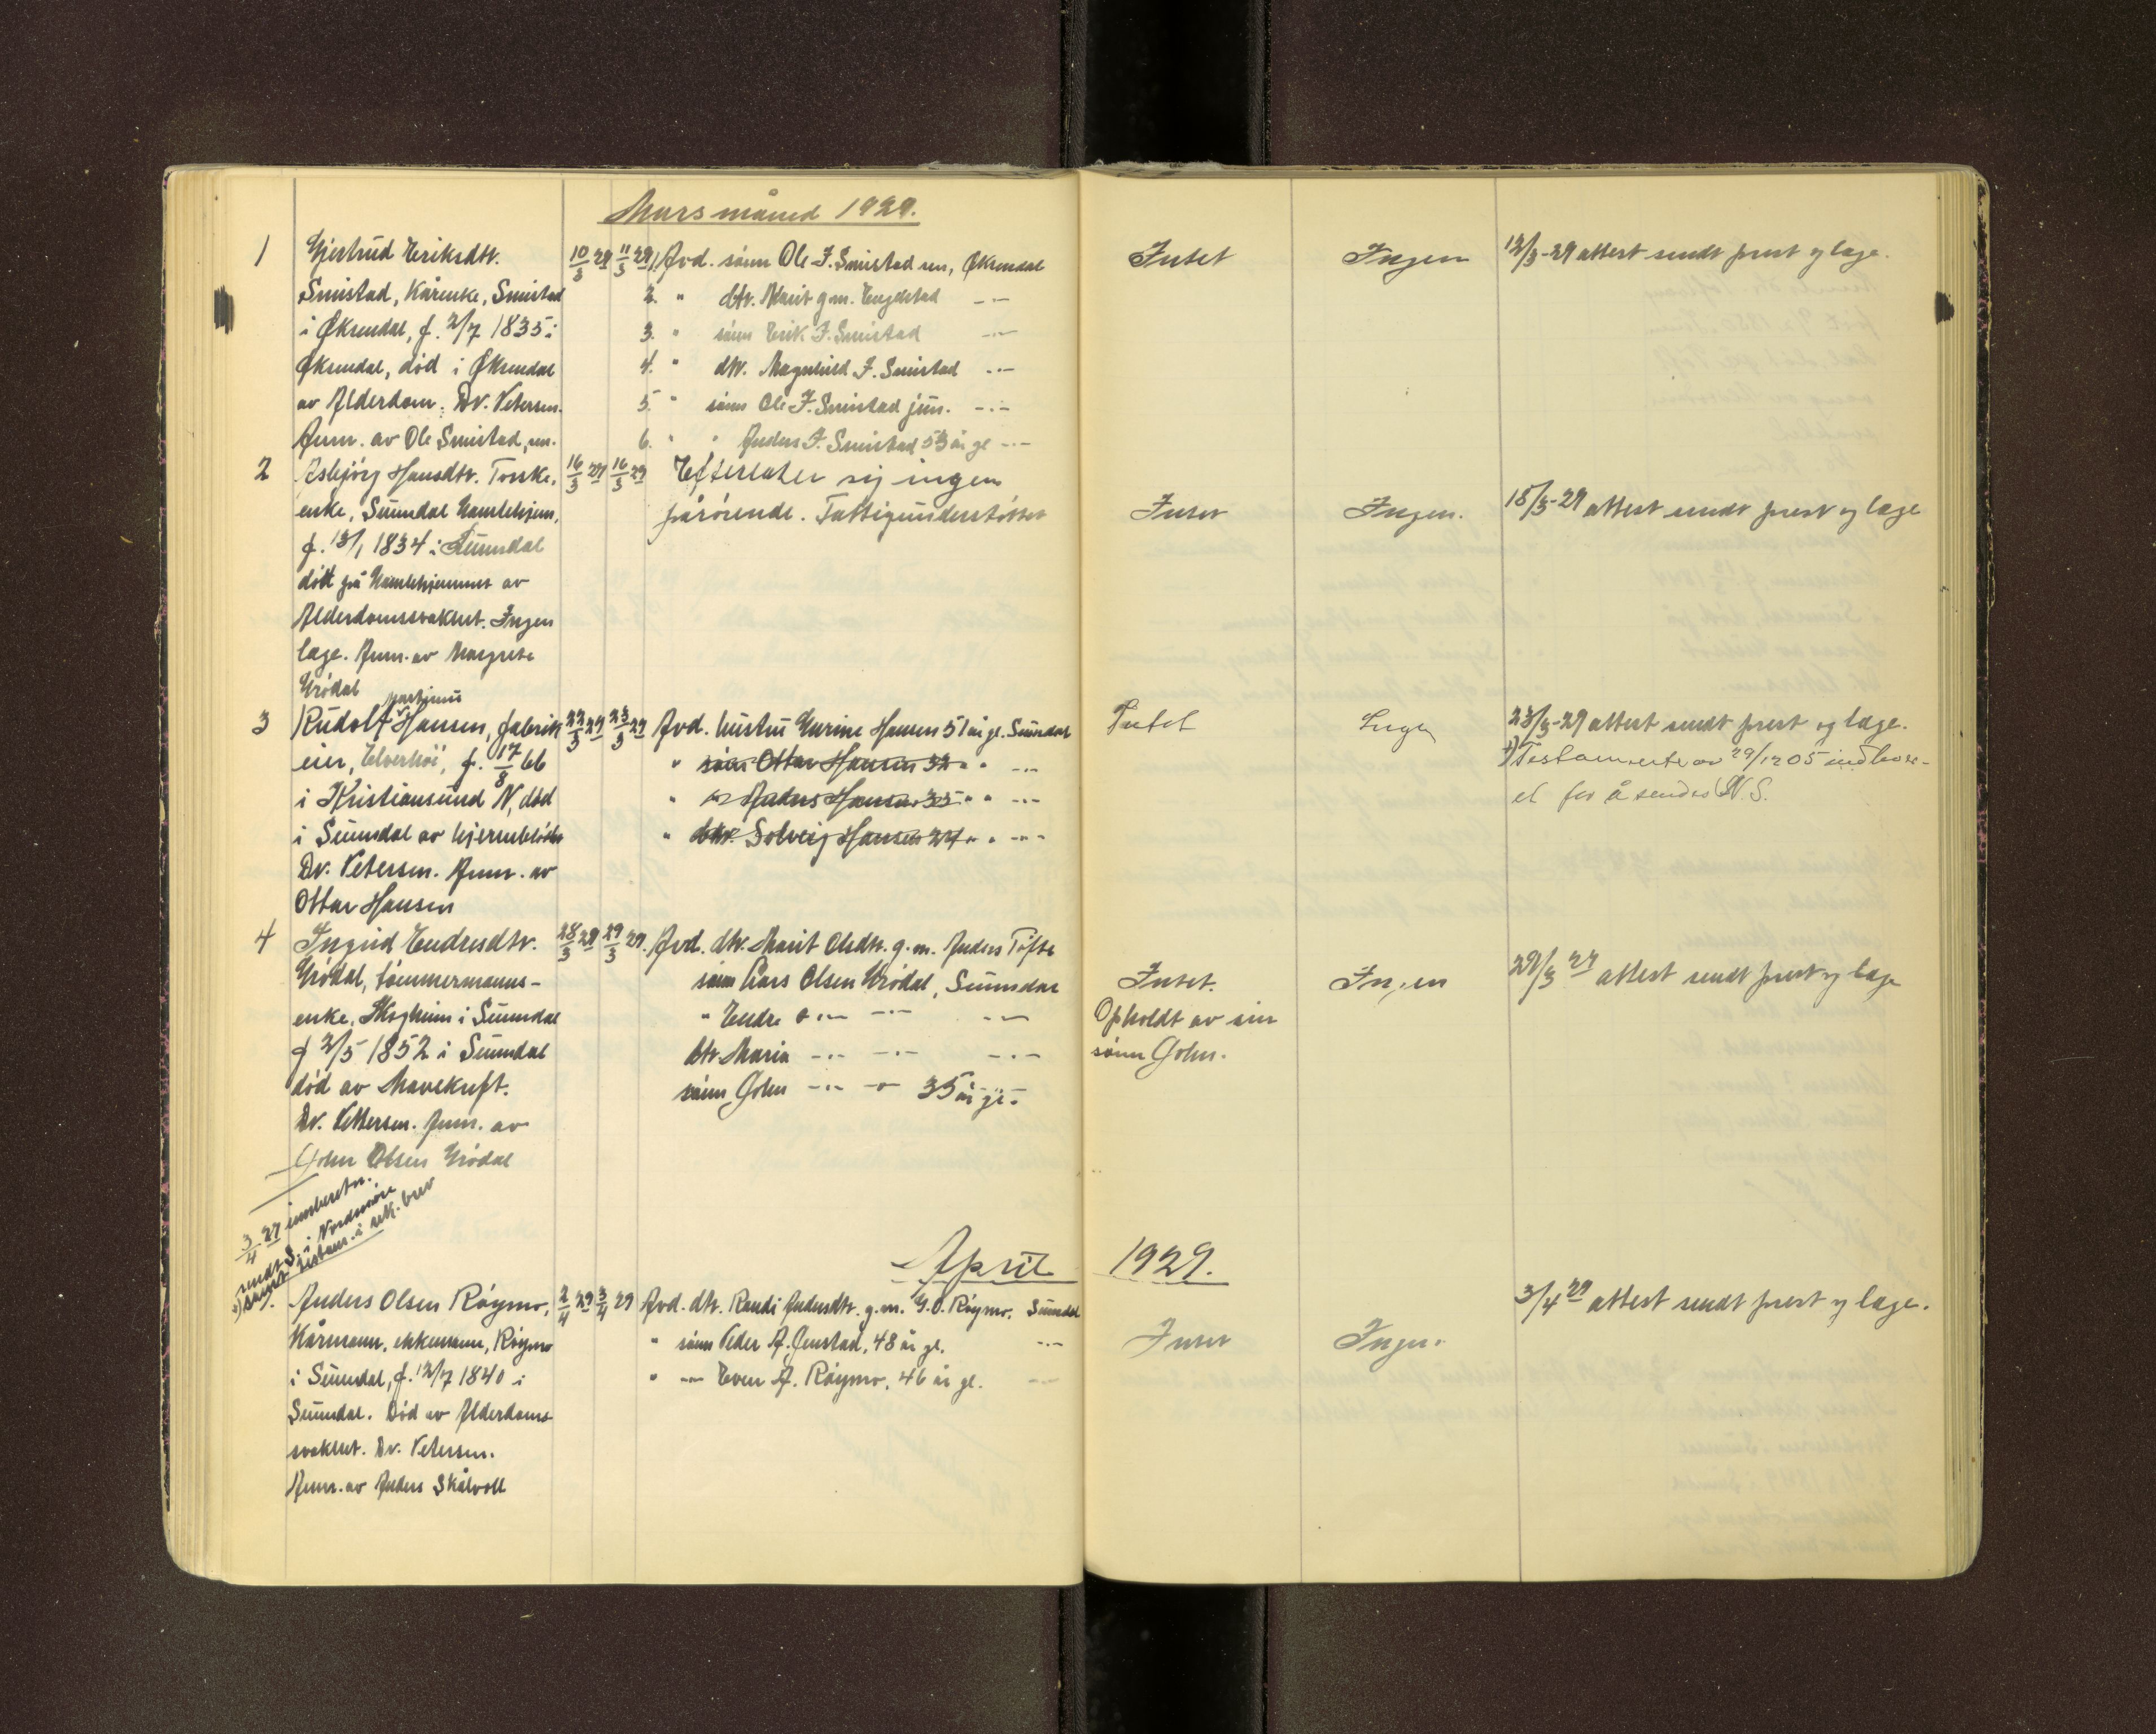 Mars måned 1929.
1
Gjertrud Eriksdtr.
Smistad, Kårenke, Smistad
i Øksendal, f. 2/7 1835 i
Øksendal, død i Øksendal
av Alderdom. Dr. Petersen.
Anm. av Ole Smistad, sen.
10/3 29
11/3 29
1) Avd. sønn Ole I. Smistad sen, Øksendal
2. " dtr. Marit g.m. Engelstad -"-
3. " sønn Erik I. Smistad -"-
4. " dtr. Magnhild I. Smistad -"-
5. " sønn Ole I. Smistad jun. -"-
6. " " Anders I. Smistad 53 år gl -"-
Intet
Ingen
12/3-29 attest sendt prest og læge.
2
Asbjørg Hansdtr. Torske,
enke, Sunndal Gamlehjem,
f. 13/1 1834 i Sunndal
død på Gamlehjemmet av
Alderdomssvakhet. Ingen
læge. Anm. av Margrete
Grødal
16/3 29
16/3 29
Efterlater sig ingen
pårørende. Fattigunderstøttet
Intet
Ingen.
18/3-29 attest sendt prest og læge
3
Rudolf Hansen, fabrik
eier, Elverhøi, f. 17/8 66
i Kristiansund N, død
i Sunndal av hjerneblødn
Dr. Petersen. Anm. av
Ottar Hansen
22/3 29
23/3 29
Avd. hustru Gurine Hansen 51 år gl. Sunndal
" sønn Ottar Hansen 32 " " -"-
" -"- Anders Hansen 35 " " -"-
" dtr. Solveig Hansen 24 " " -"-
Intet
Ingen
23/3-29 attest sendt prest og læge.
+) Testamente av 29/12 05 indlever-
et for å sendes N.S.
4
Ingrid Endresdtr.
Grødal, tømmermanns-
enke, Skogheim i Sunndal
f 2/5 1852 i Sunndal
død av Mavekreft.
Dr. Pettersen. Anm. av
John Olsen Grødal
28/3 29
29/3 29.
Avd. dtr. Marit Olsdtr. g.m. Anders Tofte
sønn Lars Olsen Grødal, Sunndal
" Endre -"- -"- -"-
dtr. Maria -"- -"- -"-
sønn John -"- -"- 35 år gl.
Intet.
Opholdt av sin
sønn John.
Ingen
29/3 29 attest sendt prest og læge
3/4 29 innberetn.
sendt S. i Nordmøre
+) samt testam. i rek. brev
April 1929.
Anders Olsen Røymo,
Kårmann, enkemann, Røymo
i Sunndal, f. 12/7 1840 i
Sunndal. Død av Alderdoms
svakhet. Dr. Petersen.
Anm. av Anders Skålvoll
2/4 29
3/4 29
Avd. dtr. Randi Andersdtr. g.m. G.O. Røymo. Sunndal
" sønn Peder A. Jenstad, 48 år gl. -"-
" -"- Even A. Røymo, 46 år gl. -"-
Intet
Ingen.
3/4 29 attest sendt prest og læge.